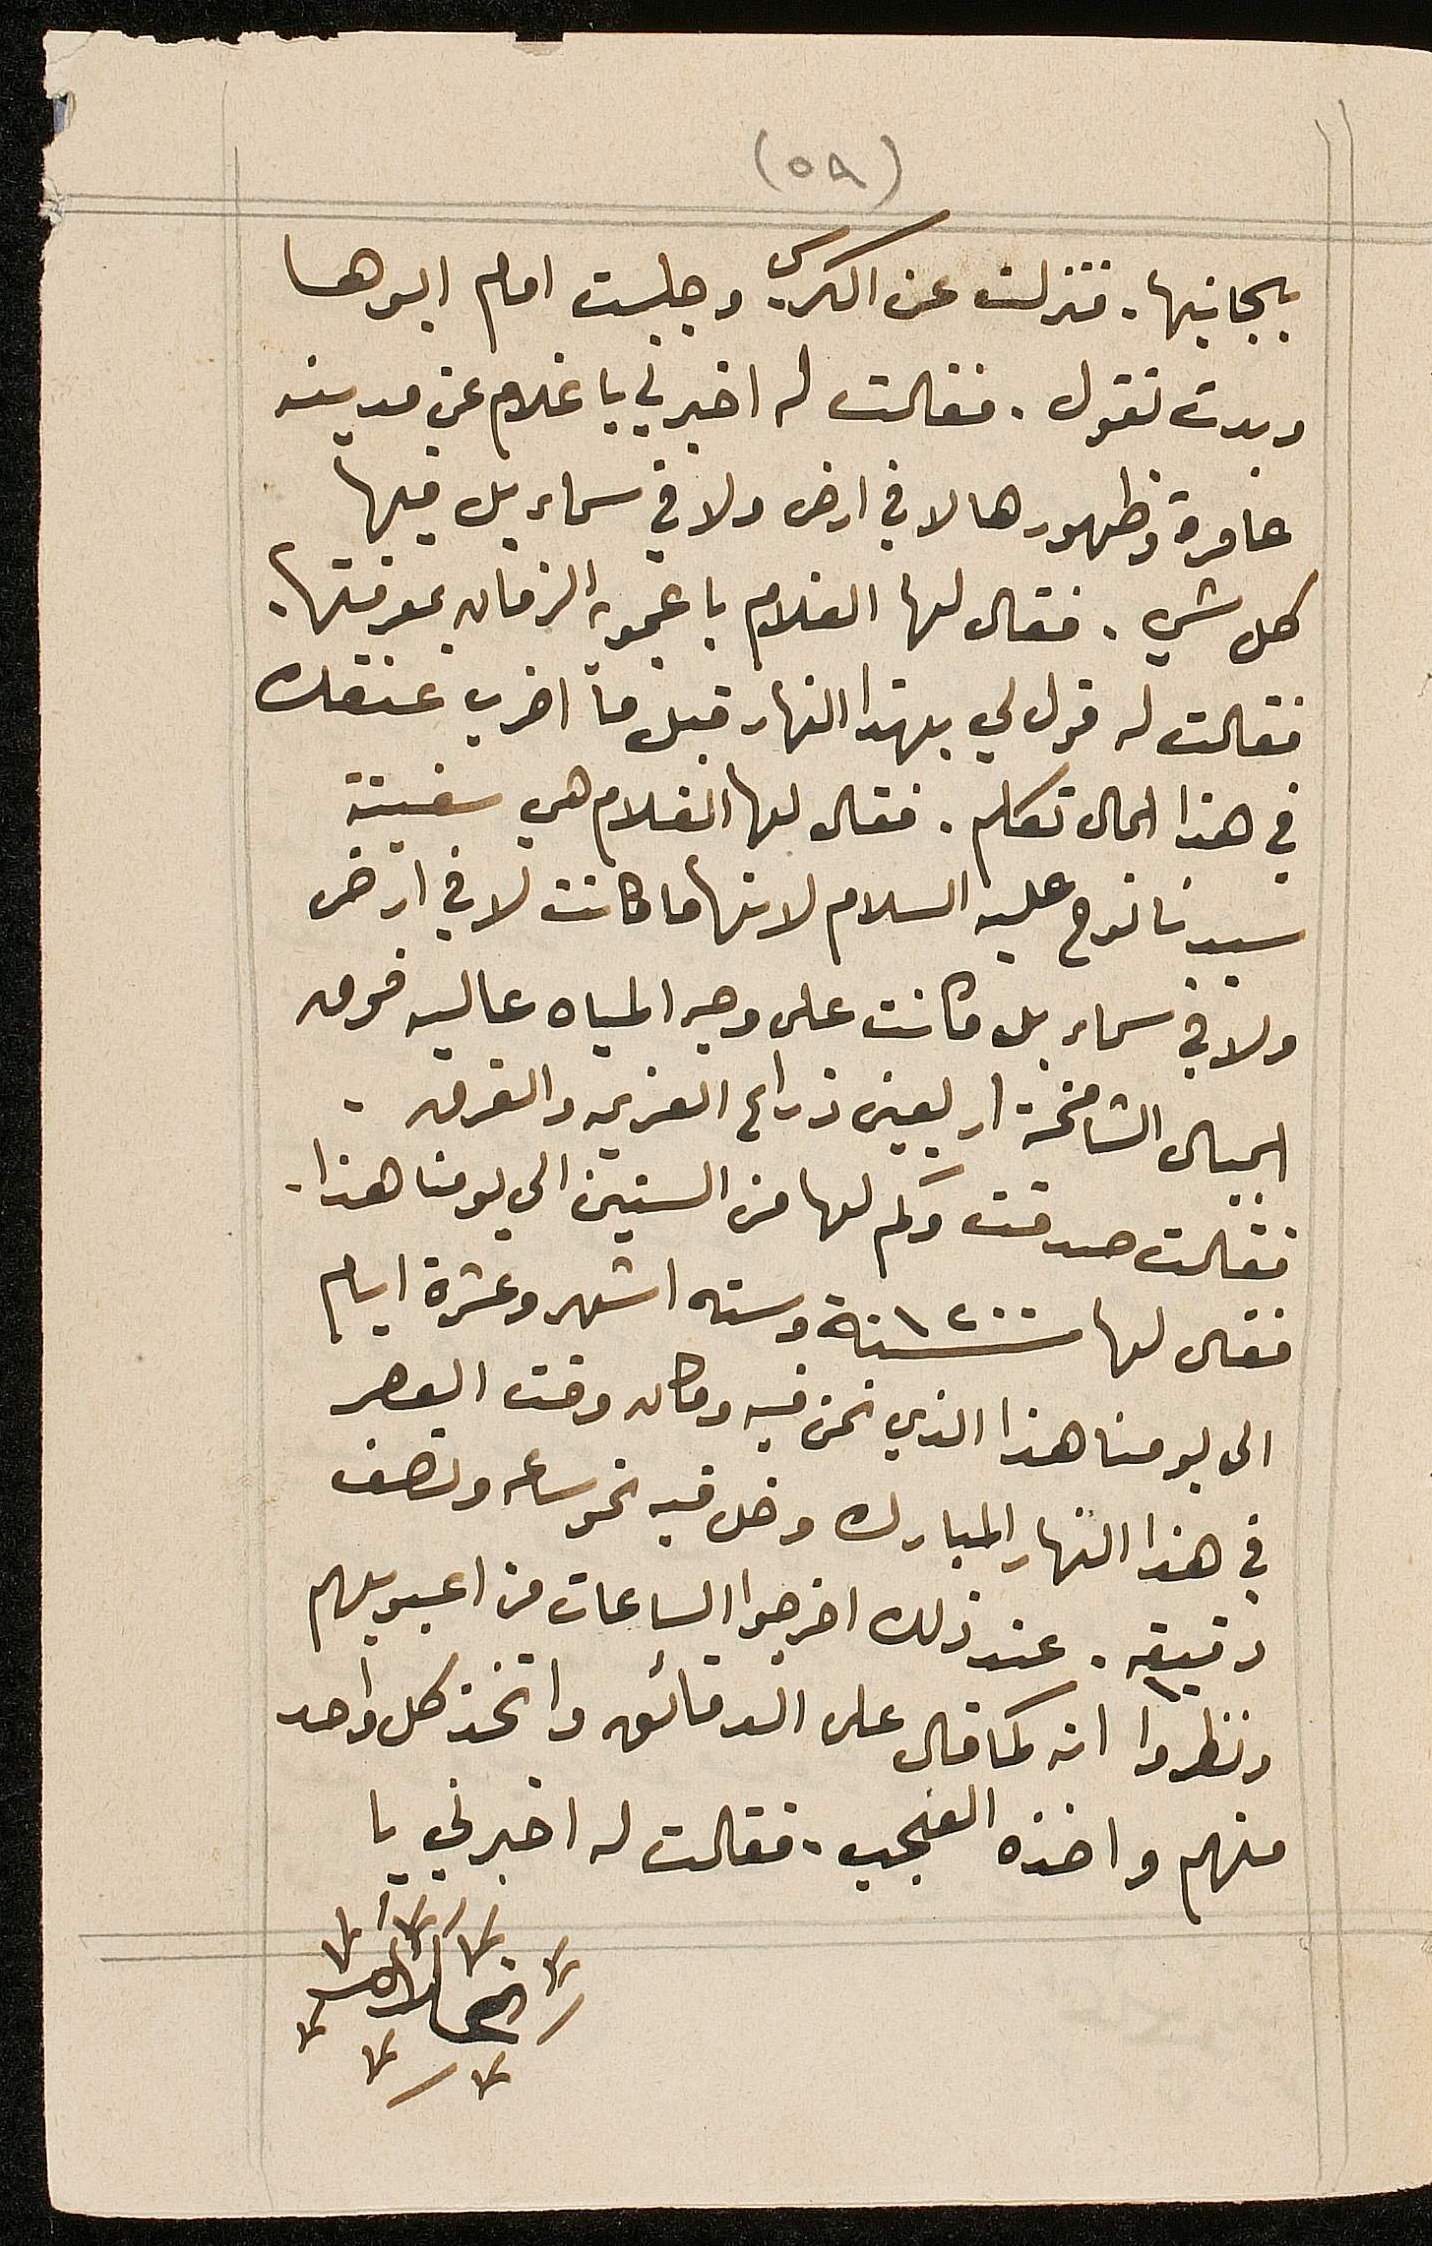 (٥٩)
بجانبها. فنزلت عن الكرسي وجلست امام ابوها
وبدت تقول. فقالت له اخبرني يا غلام عن مدينه
عامرة وظهورها لا في ارض ولا في سماء بل فيها
كل شي. فقال لها الغلام يا عجوبه الزمان بمعرفتها.
فقالت له قول لي بهذا النهار قبل ما اضرب عنقك
في هذا الحال تكلم. فقال لها الغلام هي سفينة
سيدنا نوح عليه السلام لانها ما كانت لا في ارض
ولا في سماء بل كانت على وجه المياه عاليه فوق
الجبال الشامخة اربعين ذراع العزيمه والغرق.
فقالت صدقت وكم لها من السنين الى يومنا هذا.
فقال لها ١٢٠٠ سنة وسته اشهر وعشرة ايام
الى يومنا هذا الذي نحن فيه وكان وقت العصر
في هذا النهار المبارك دخل فيه نحو ساعه ونصف
دقيقه. عند ذلك اخرجوا الساعات من اعبوبهم
ونظروا انه كما قال على الدقائق واتخذ كل واحد
منهم واخذه العجب. فقالت له اخبرني يا